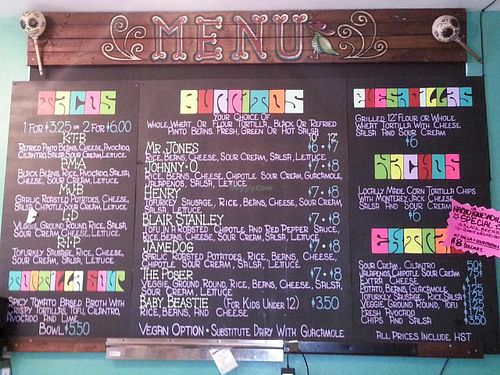 MENU
TACOS
1 FOR $3.25 OR 2 FOR $6.00
REFRIED PINTO BEANS, CHEESE, AVOCADO,
CILANTRO, SALSA, SOUR CREAM, LETTUCE
BLACK BEANS, RICE, AVOCADO, SALSA,
CHEESE, SOUR CREAM, LETTUCE
GARLIC ROASTED POTATOES, CHEESE,
SALSA, CHIPOTLE SOUR CREAM, LETTUCE
VEGGIE GROUND ROUND, RICE, SALSA,
SOUR CREAM, CHEESE, LETTUCE
TOFURKEY SAUSAGE, RICE, CHEESE,
SOUR CREAM, SALSA, LETTUCE
TORTILLA SOUP
SPICY TOMATO BASED BROTH WITH
CRISPY TORTILLAS, TOFU, CILANTRO,
AVOCADO AND LIME
BOWL $5.50
BURRITOS
YOUR CHOICE OF
WHOLE WHEAT OR FLOUR TORTILLA, BLACK OR REFRIED
PINTO BEANS, FRESH, GREEN OR HOT SALSA
10 12
MR. JONES $6 • $7
RICE, BEANS, CHEESE, SOUR CREAM, SALSA, LETTUCE
JOHNNY-O $7 • $8
RICE, BEANS, CHEESE, CHIPOTLE SOUR CREAM, GUACAMOLE,
JALAPENOS, SALSA, LETTUCE
HENRY $7 • $8
TOFURKEY SAUSAGE, RICE, BEANS, CHEESE, SOUR CREAM,
SALSA, LETTUCE
BLAIR STANLEY $7 • $8
TOFU IN A ROASTED CHIPOTLE AND RED PEPPER SAUCE,
RICE, BEANS, CHEESE, SOUR CREAM, SALSA, LETTUCE
JAMEDOG $7 • $8
GARLIC ROASTED POTATOES, RICE, BEANS, CHEESE,
CHIPOTLE SOUR CREAM, SALSA, LETTUCE
THE POSER $7 • $8
VEGGIE GROUND ROUND, RICE, BEANS, CHEESE, SOUR
CREAM, SALSA, LETTUCE
BABY BEASTIE (FOR KIDS UNDER 12) $3.50
RICE, BEANS, AND CHEESE
VEGAN OPTION • SUBSTITUTE DAIRY WITH GUACAMOLE
QUESADILLAS
GRILLED 12" FLOUR OR WHOLE
WHEAT TORTILLA WITH CHEESE
SALSA AND SOUR CREAM
$6
NACHOS
LOCALLY MADE CORN TORTILLA CHIPS
WITH MONTEREY JACK CHEESE,
SALSA AND SOUR CREAM
$6
SPECIAL
$8
EXTRAZ
SOUR CREAM, CILANTRO
JALAPENOS, CHIPOTLE SOUR CREAM
EXTRA CHEESE
POTATO, BEANS, GUACAMOLE,
TOFURKEY SAUSAGE, RICE, SALSA
VEGGIE, GROUND ROUND, TOFU
FRESH AVOCADO
CHIPS AND SALSA
ALL PRICES INCLUDE HST